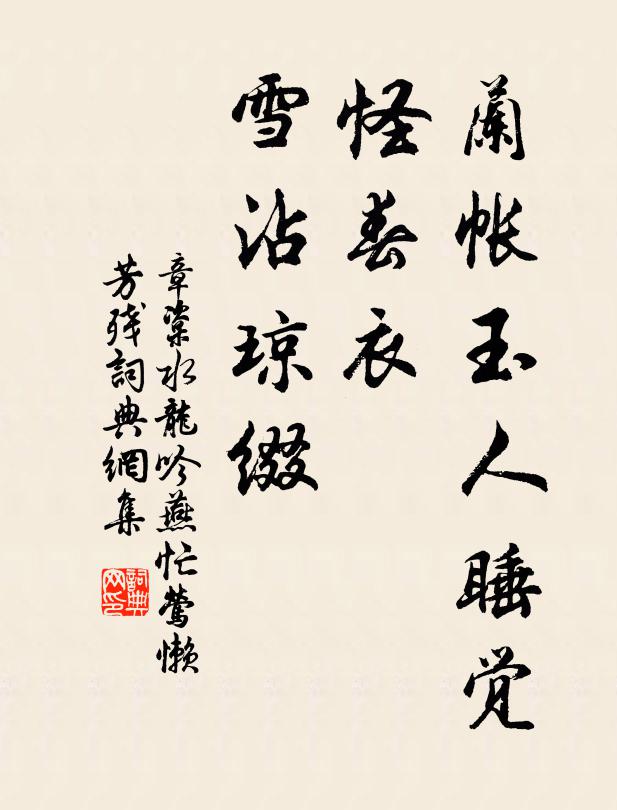 蘭帳玉人睡觉
怪春衣
雪沾琼綴
章楶水龍吟燕忙鶯懒
芳残詞典網集
詞典
网印